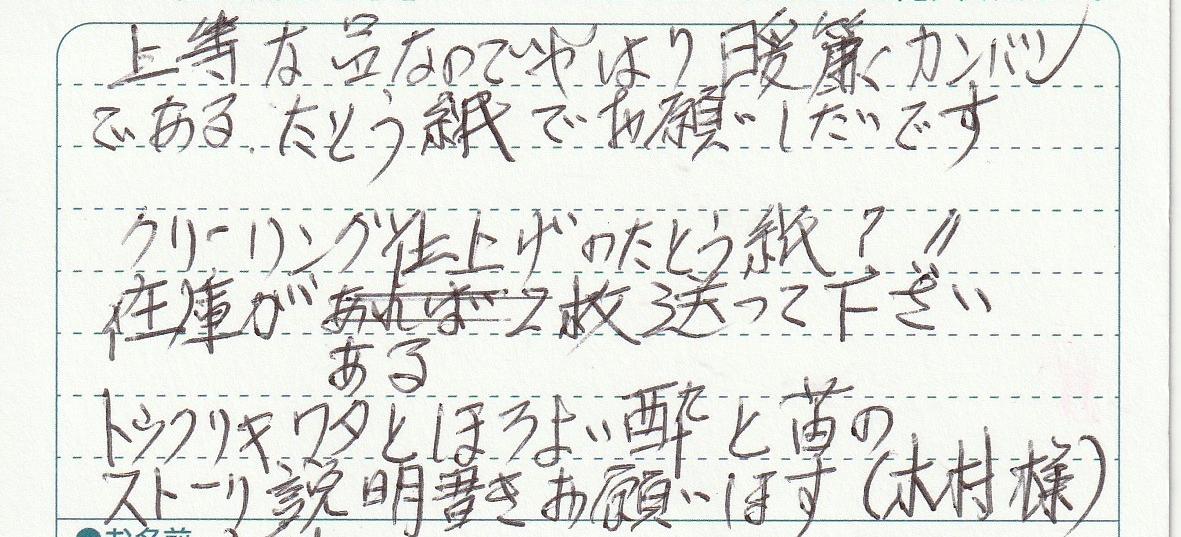 上等な品なのでやはり暖簾、カンバン
である、たとう紙でお願いしたいです
クリーリング仕上げのたとう紙?〃
在庫が あれば 2枚送って下ざい
ある
トックリキワタとほろよい酔と苗の
ストーリ説明書きお願いします(木村様)
●お名前